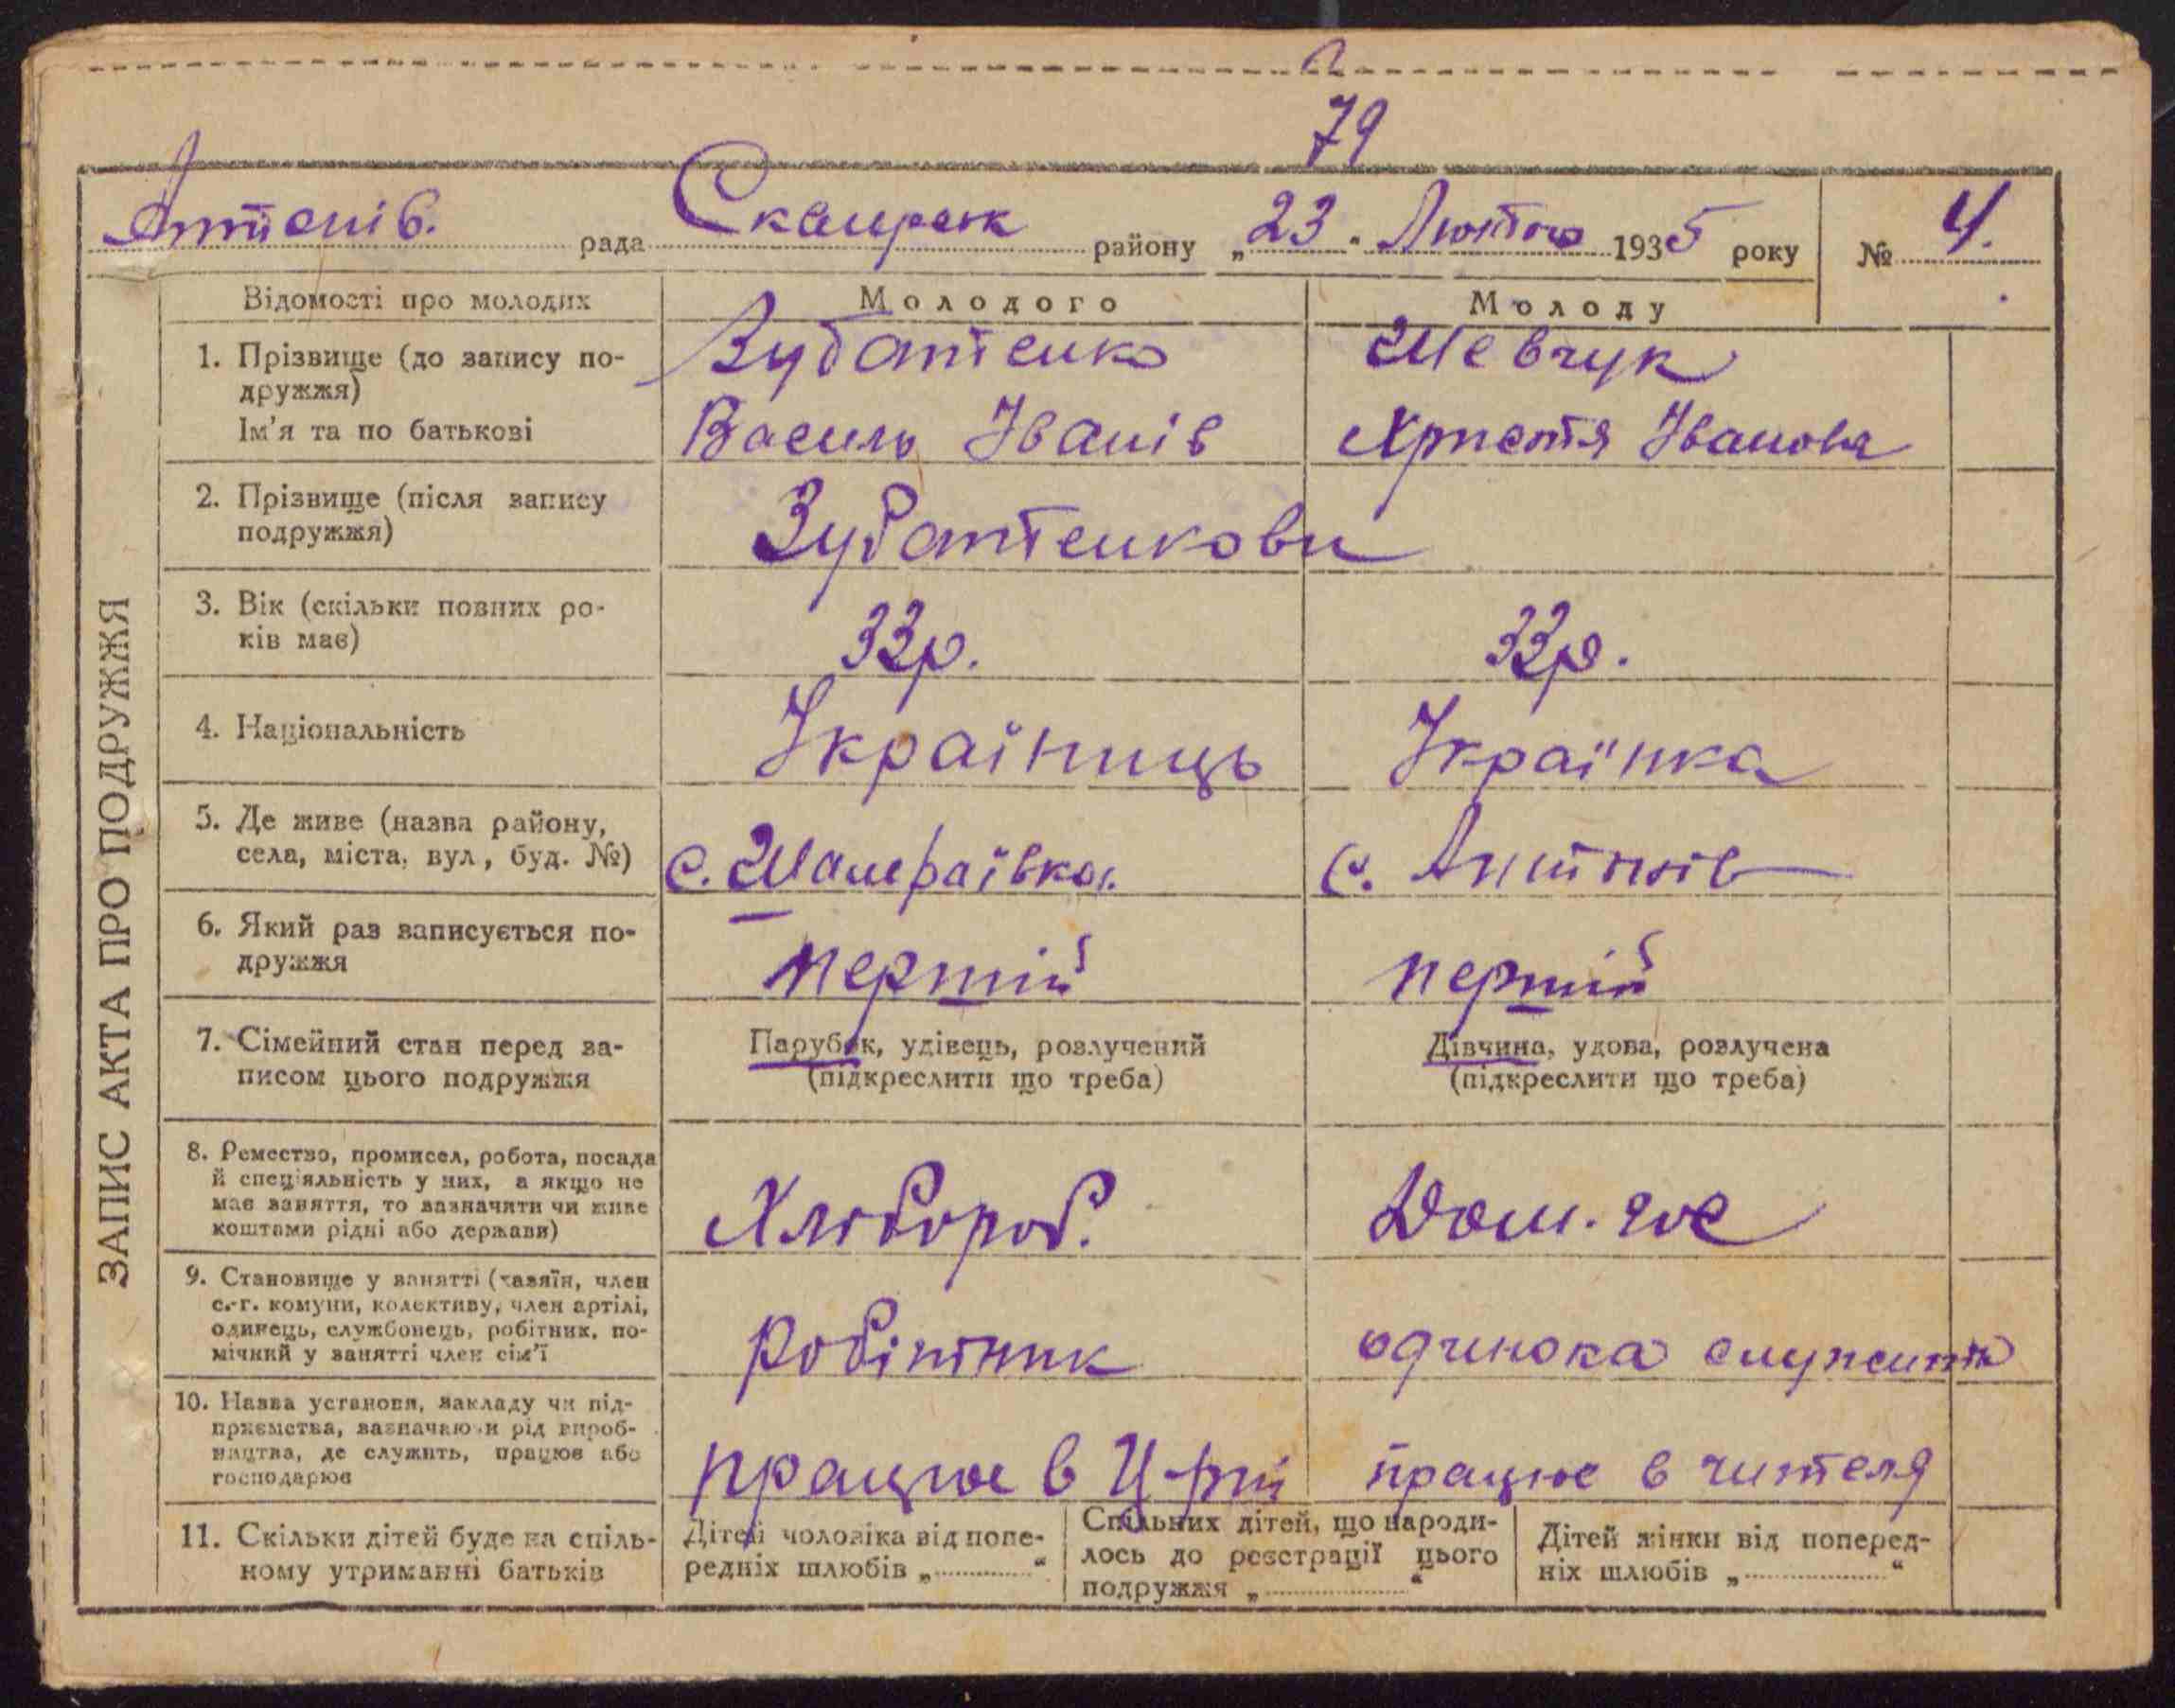 79
Антонів. рада Сквирськ району „23“ Лютого 1935 року № 4.
ЗАПИС АКТА ПРО ПОДРУЖЖЯ
Відомості про молодих Молодого Молоду
1. Прізвище (до запису по-
дружжя) Зубатенко Шевчук
Ім'я та по батькові Василь Іванів Христя Іванова
2. Прізвище (після запису
подружжя) Зубатенкови
3. Вік (скільки повних ро-
ків має) 33р. 33р.
4. Національність Україниць Українка
5. Де живе (назва району,
села, міста, вул, буд. №) с. Шамраївка. с. Антонів
6. Який раз записується по-
дружжя перший перший
7. Сімейний стан перед за-
писом цього подружжя
Парубок, удівець, розлучений
(підкреслити що треба)
Дівчина, удова, розлучена
(підкреслити що треба)
8. Ремество, промисел, робота, посада
й спеціяльність у них, а якщо не
має заняття, то зазначити чи живе
коштами рідні або держави)
Хлібороб. Дом. гос
9. Становище у занятті (хазяїн, член
с.-г. комуни, колективу, член артілі,
одинець, службовець, робітник, по-
мічний у занятті член сім'ї
Робітник одинока
10. Назва установи, закладу чи під-
приємства, зазначаючи рід вироб-
ництва, де служить, працює або
господарює
працює в працює в чителя
11. Скільки дітей буде на спіль-
ному утриманні батьків
Дітей чоловіка від попе-
редніх шлюбів „ “
Спільних дітей, що народи-
лось до реєстрації цього
подружжя „ “
Дітей жінки від поперед-
ніх шлюбів „ “